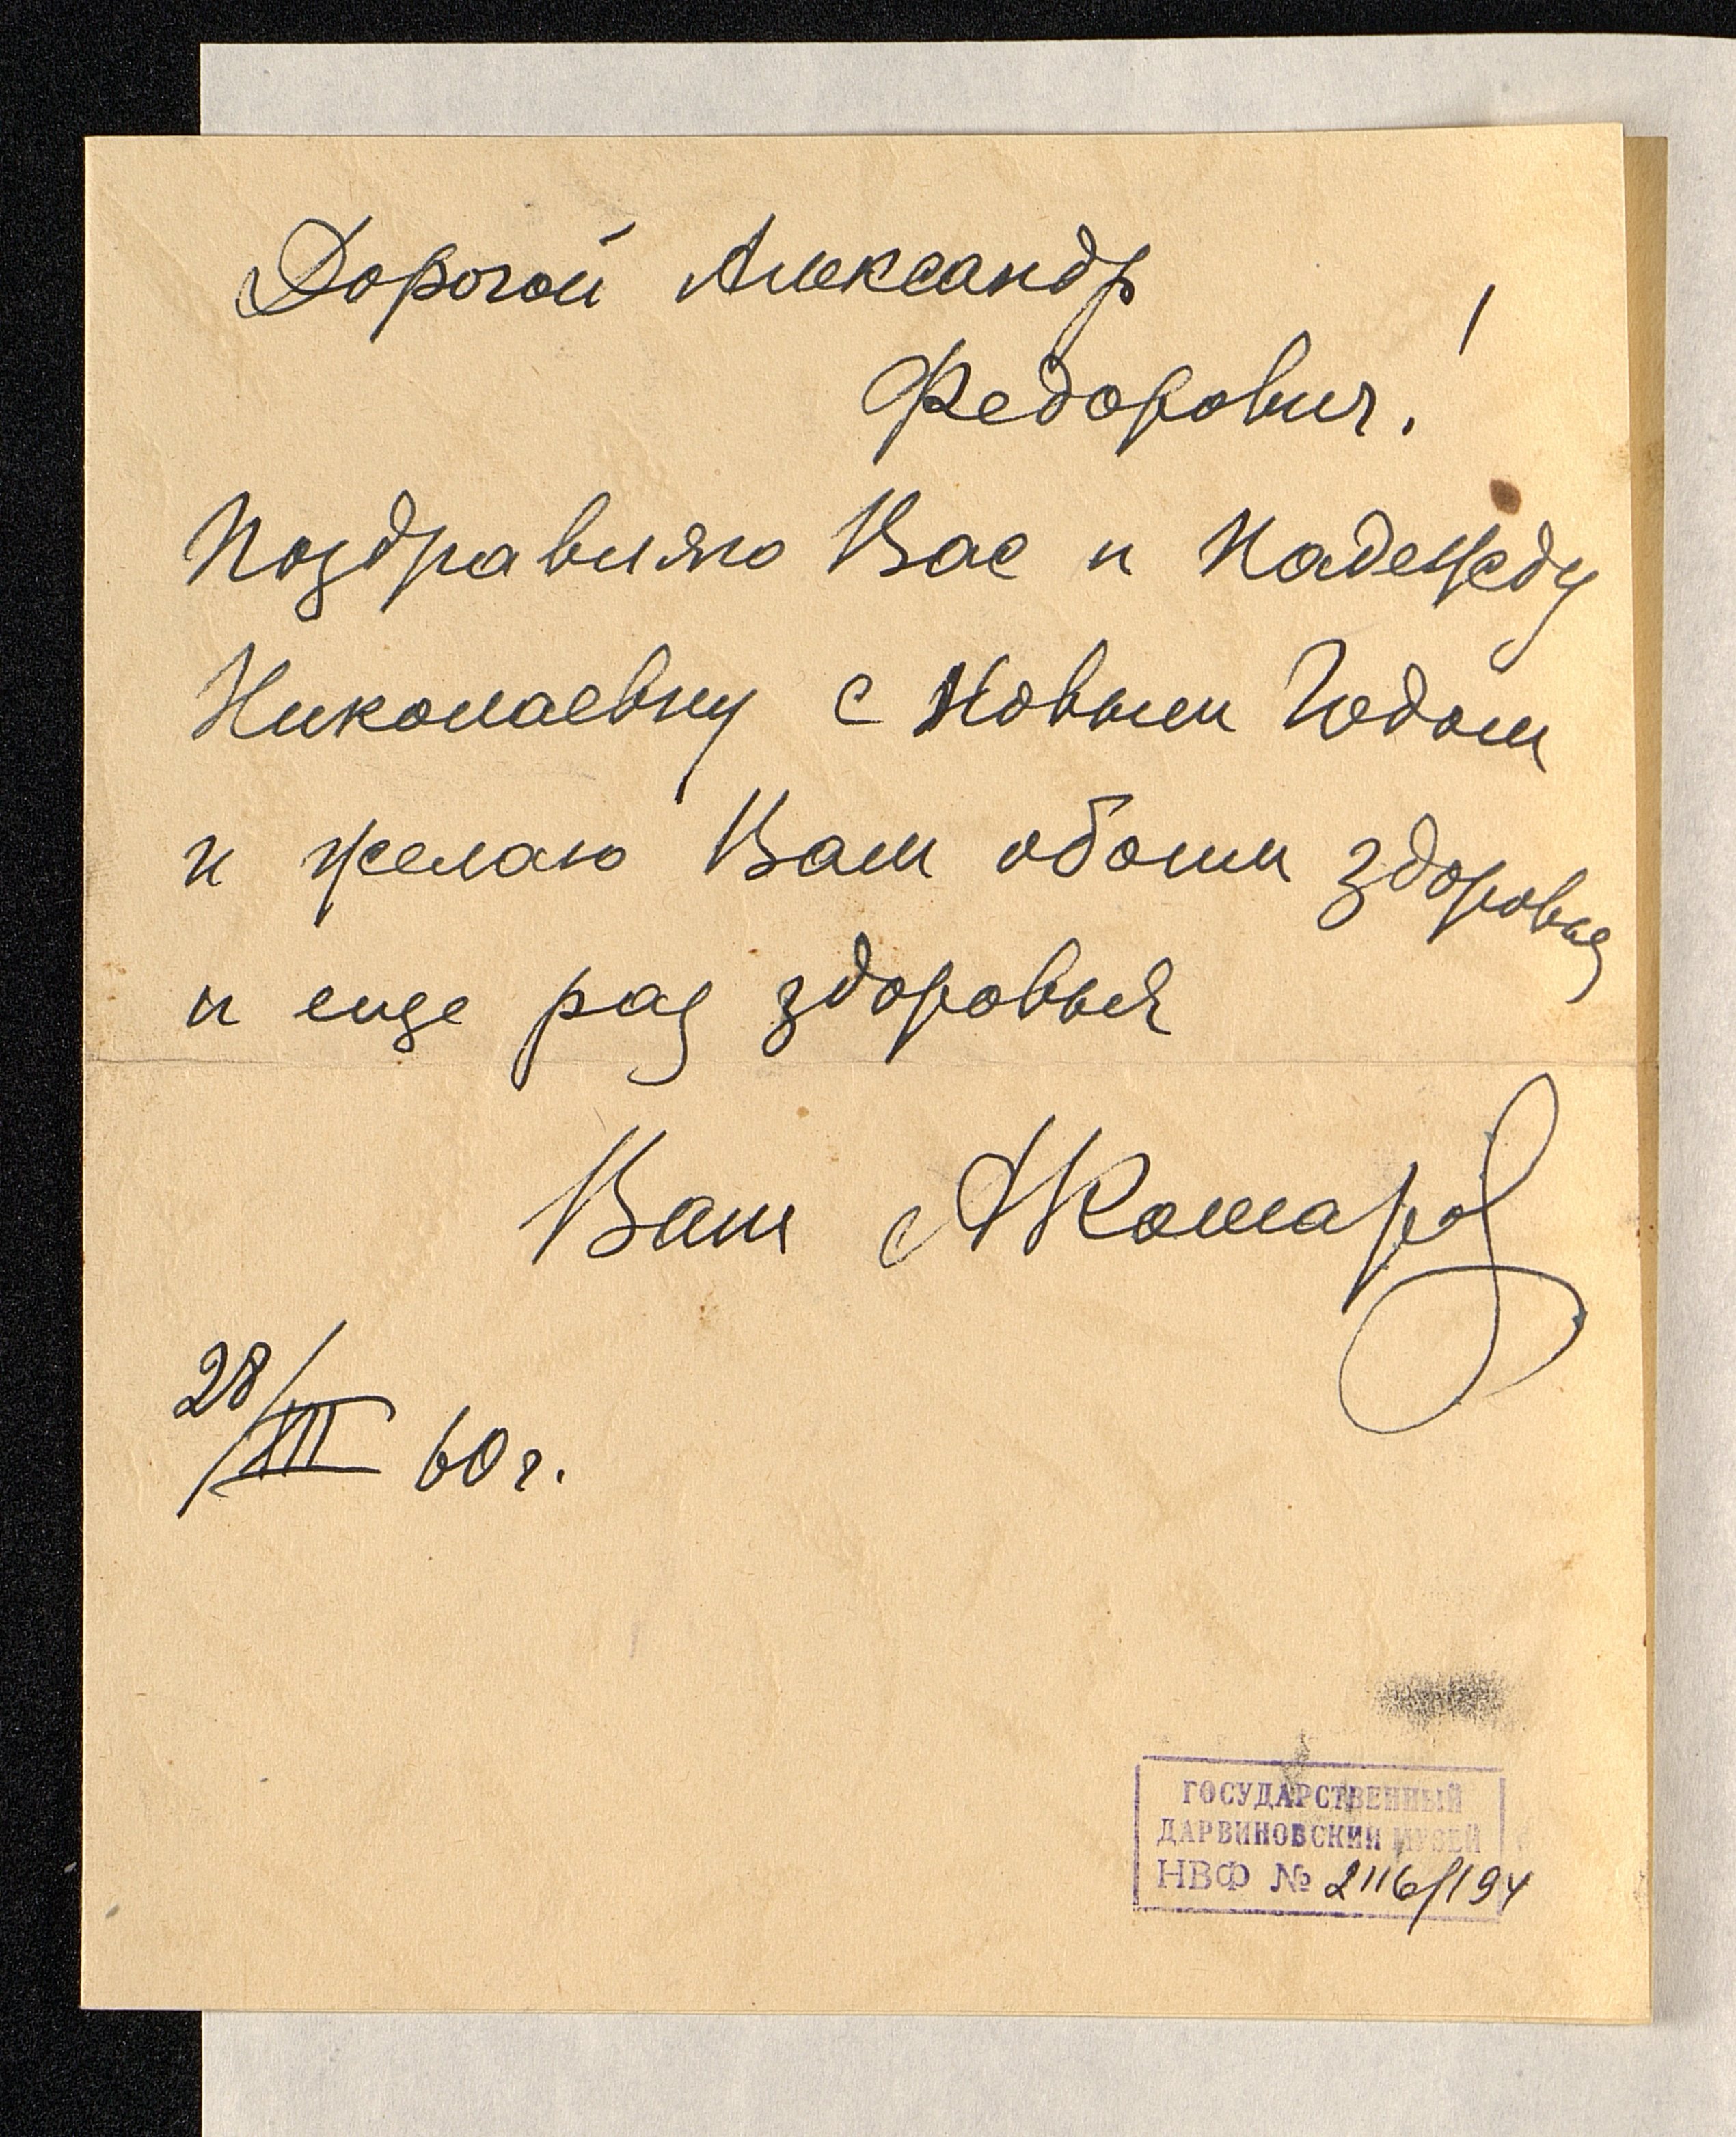 Дорогой Александр
Федорович!
Поздравляю Вас и Надежду
Николаевну с Новым Годом
и желаю Вам обоим здоровья
и еще раз здоровья
Ваш АКомаров
28/XII 60 г.
ГОСУДАРСТВЕННЫЙ
ДАРВИНОВСКИЙ МУЗЕЙ
НВФ № 2116/194